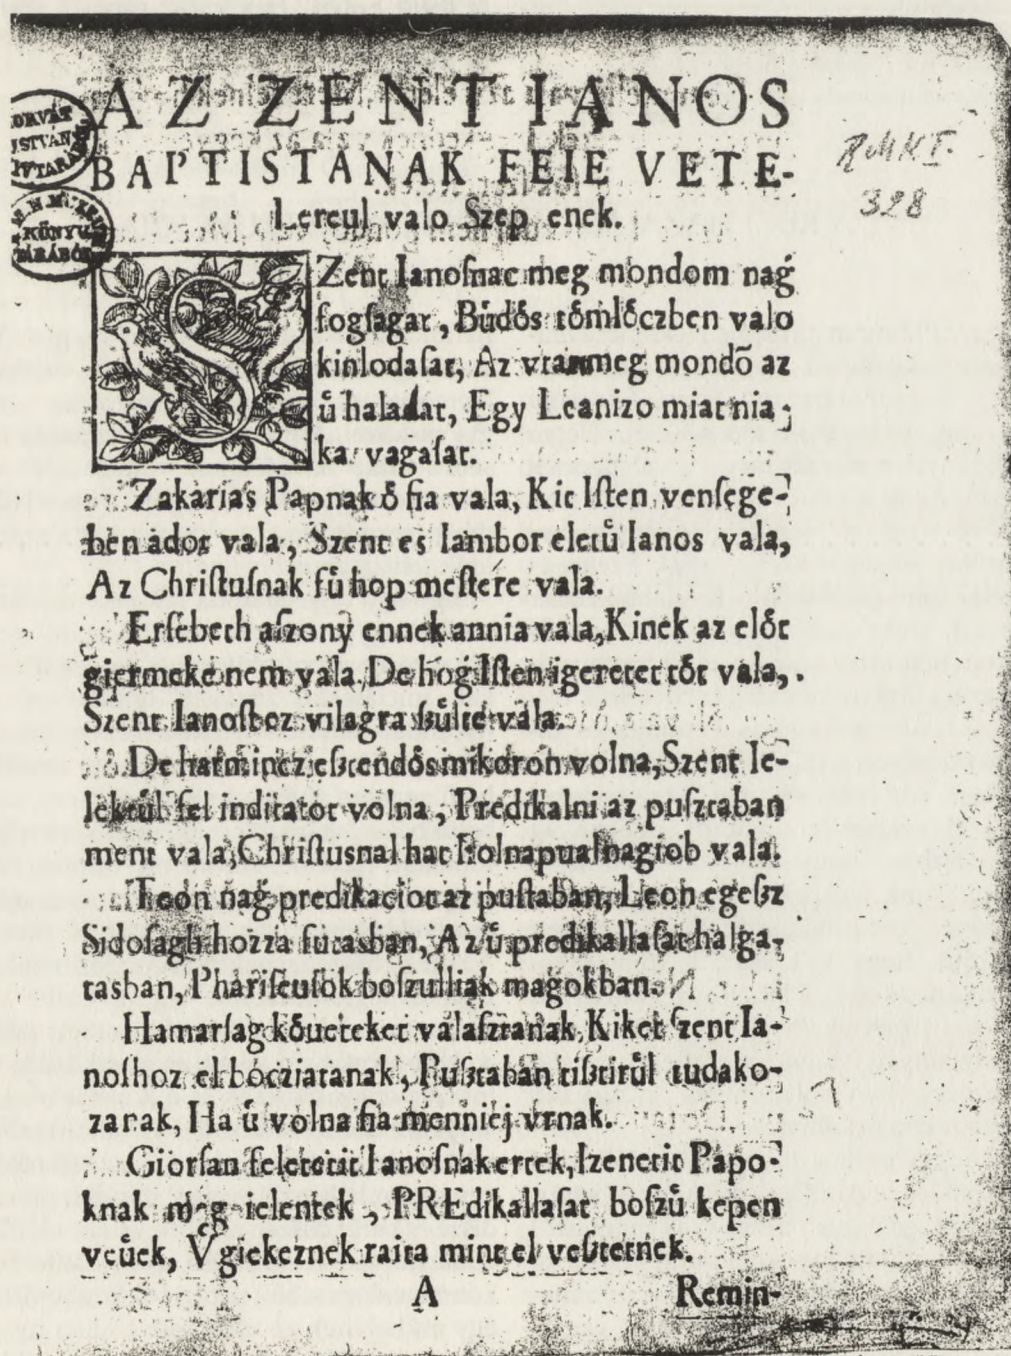 AZ ZENT IANOS
BAPTISTANAK FEIE VETE-
Lereul valo Szep enek.
SZent Ianoſnac meg mondom naǵ
fogſagat, Bűdős tőmlőczben valo
kinlodaſat, Az vtan meg mondõ az
ů haladat, Egy Leanizo miat nia-
ka vagaſat.
Zakarias Papnak ő fia vala, Kit Iſten venſege-
ben adot vala, Szent es Iambor eletů Ianos vala,
Az Chriſtuſnak fů hop meſtere vala.
Erſebeth aſzony ennek annia vala, Kinek az előt
giermeke nem vala, De hoǵ Iſten igeretet tőt vala,
Szent Ianoſt ez vilagra ſzůlte vala.
De harmincz eſztendős mikoron volna, Szent le-
lektůl fel inditatot volna, Predikalni az puſztaban
ment vala, Chriſtusnal hat holnapual nagiob vala.
Toon naǵ predikaciot az puſtaban, Leon egeſz
Sidoſagh hozza futasban, Az ů predikallaſat halga-
tasban, Phariſeuſok boſzulliak magokban.
Hamarſag kőueteket valaſztanak, Kiket ſzent Ia-
noſhoz el bocziatanak, Puſztaban tiſztirůl tudako-
zanak, Ha ů volna fia menniej vrnak.
Giorſan feletetit Ianoſnak ertek, Izenetit Papo-
knak meg ielentek, PREdikallaſat boſzů kepen
veůek, Vgiekeznek raita mint el veſztetnek.
A Remin-
HORVÁT
ISTVÁN
KÖNYV
TÁRÁBÓL
RMK I.
328